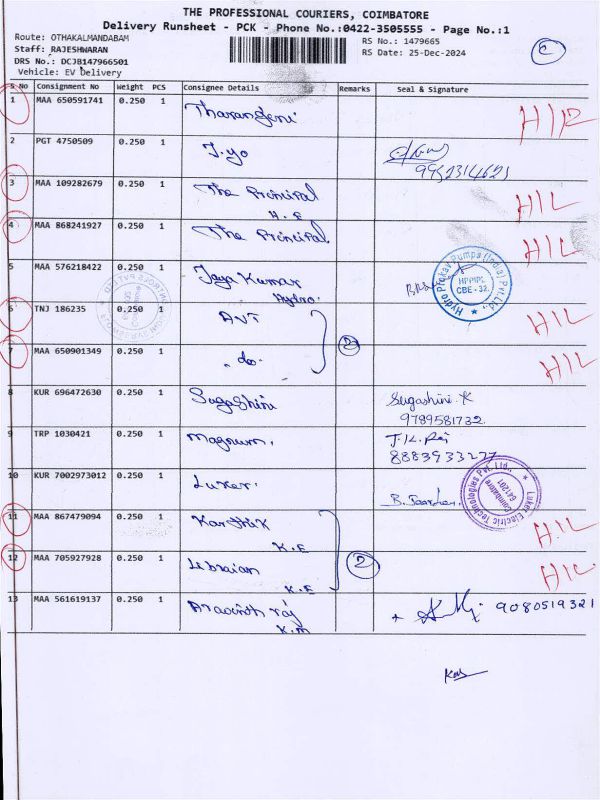 THE PROFESSIONAL COURIERS, COIMBATORE
Delivery Runsheet - PCK - Phone No.:0422-3505555 - Page No.:1
Route: OTHAKALMANDABAM
Staff: RAJESHWARAN
DRS No.: DCJB147966501
Vehicle: EV Delivery
RS No.: 1479665
RS Date: 25-Dec-2024
S No Consignment No Weight PCS Consignee Details Remarks Seal & Signature
1 MAA 650591741 0.250 1 Tharangeni
2 PGT 4750509 0.250 1 J.yo 9952314621
3 MAA 109282679 0.250 1 The Principal H.E H/L
4 MAA 868241927 0.250 1 The Principal H/L
5 MAA 576218422 0.250 1 Jaya Kumar Hydro. Hydro Prokav Pumps (India) Pvt. Ltd., HPPIPL CBE - 32.
6 TNJ 186235 0.250 1 AVT H/L
7 MAA 650901349 0.250 1 " do. 2 H/L
8 KUR 696472630 0.250 1 Sugashini Sugashini K
9789581732
9 TRP 1030421 0.250 1 Magnum. J.K. Raj
8883933277
10 KUR 7002973012 0.250 1 Luker. Luker Electric Technologies Pvt. Ltd., Coimbatore 641201
11 MAA 867479094 0.250 1 Karthik K.E H/L
12 MAA 705927928 0.250 1 Librarian K.E 2 H/L
13 MAA 561619137 0.250 1 Aravinth raj K.M 9080519321